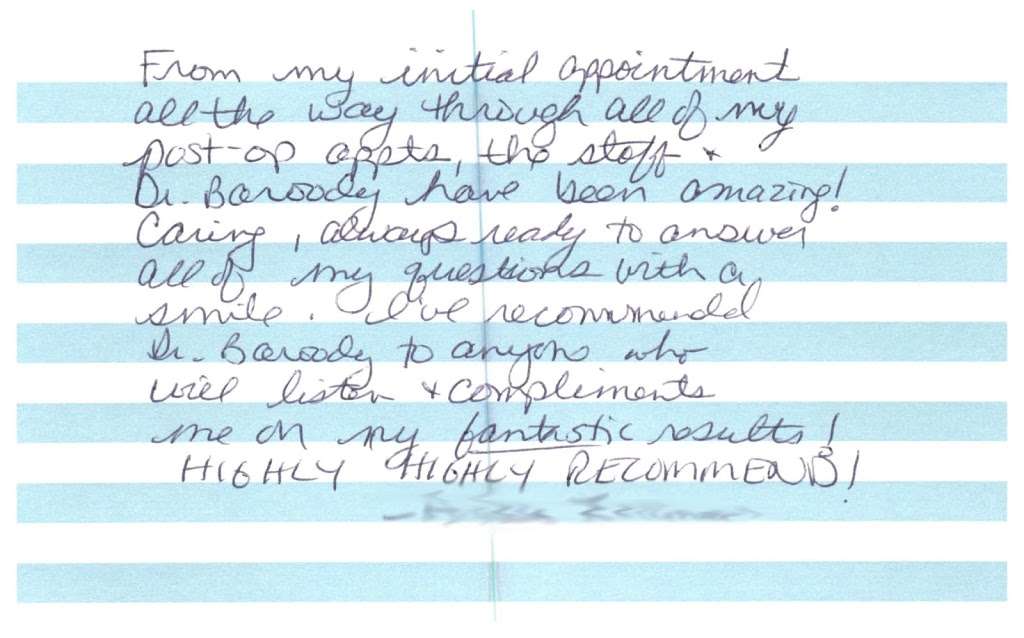 From my initial appointment
all the way through all of my
post-op appts, the staff +
Dr. Baroody have been amazing!
Caring, always ready to answer
all of my questions with a
smile. I've recommend
Dr. Baroody to anyone who
will listen + compliments
me on my fantastic results!
HIGHLY HIGHLY RECOMMEND!